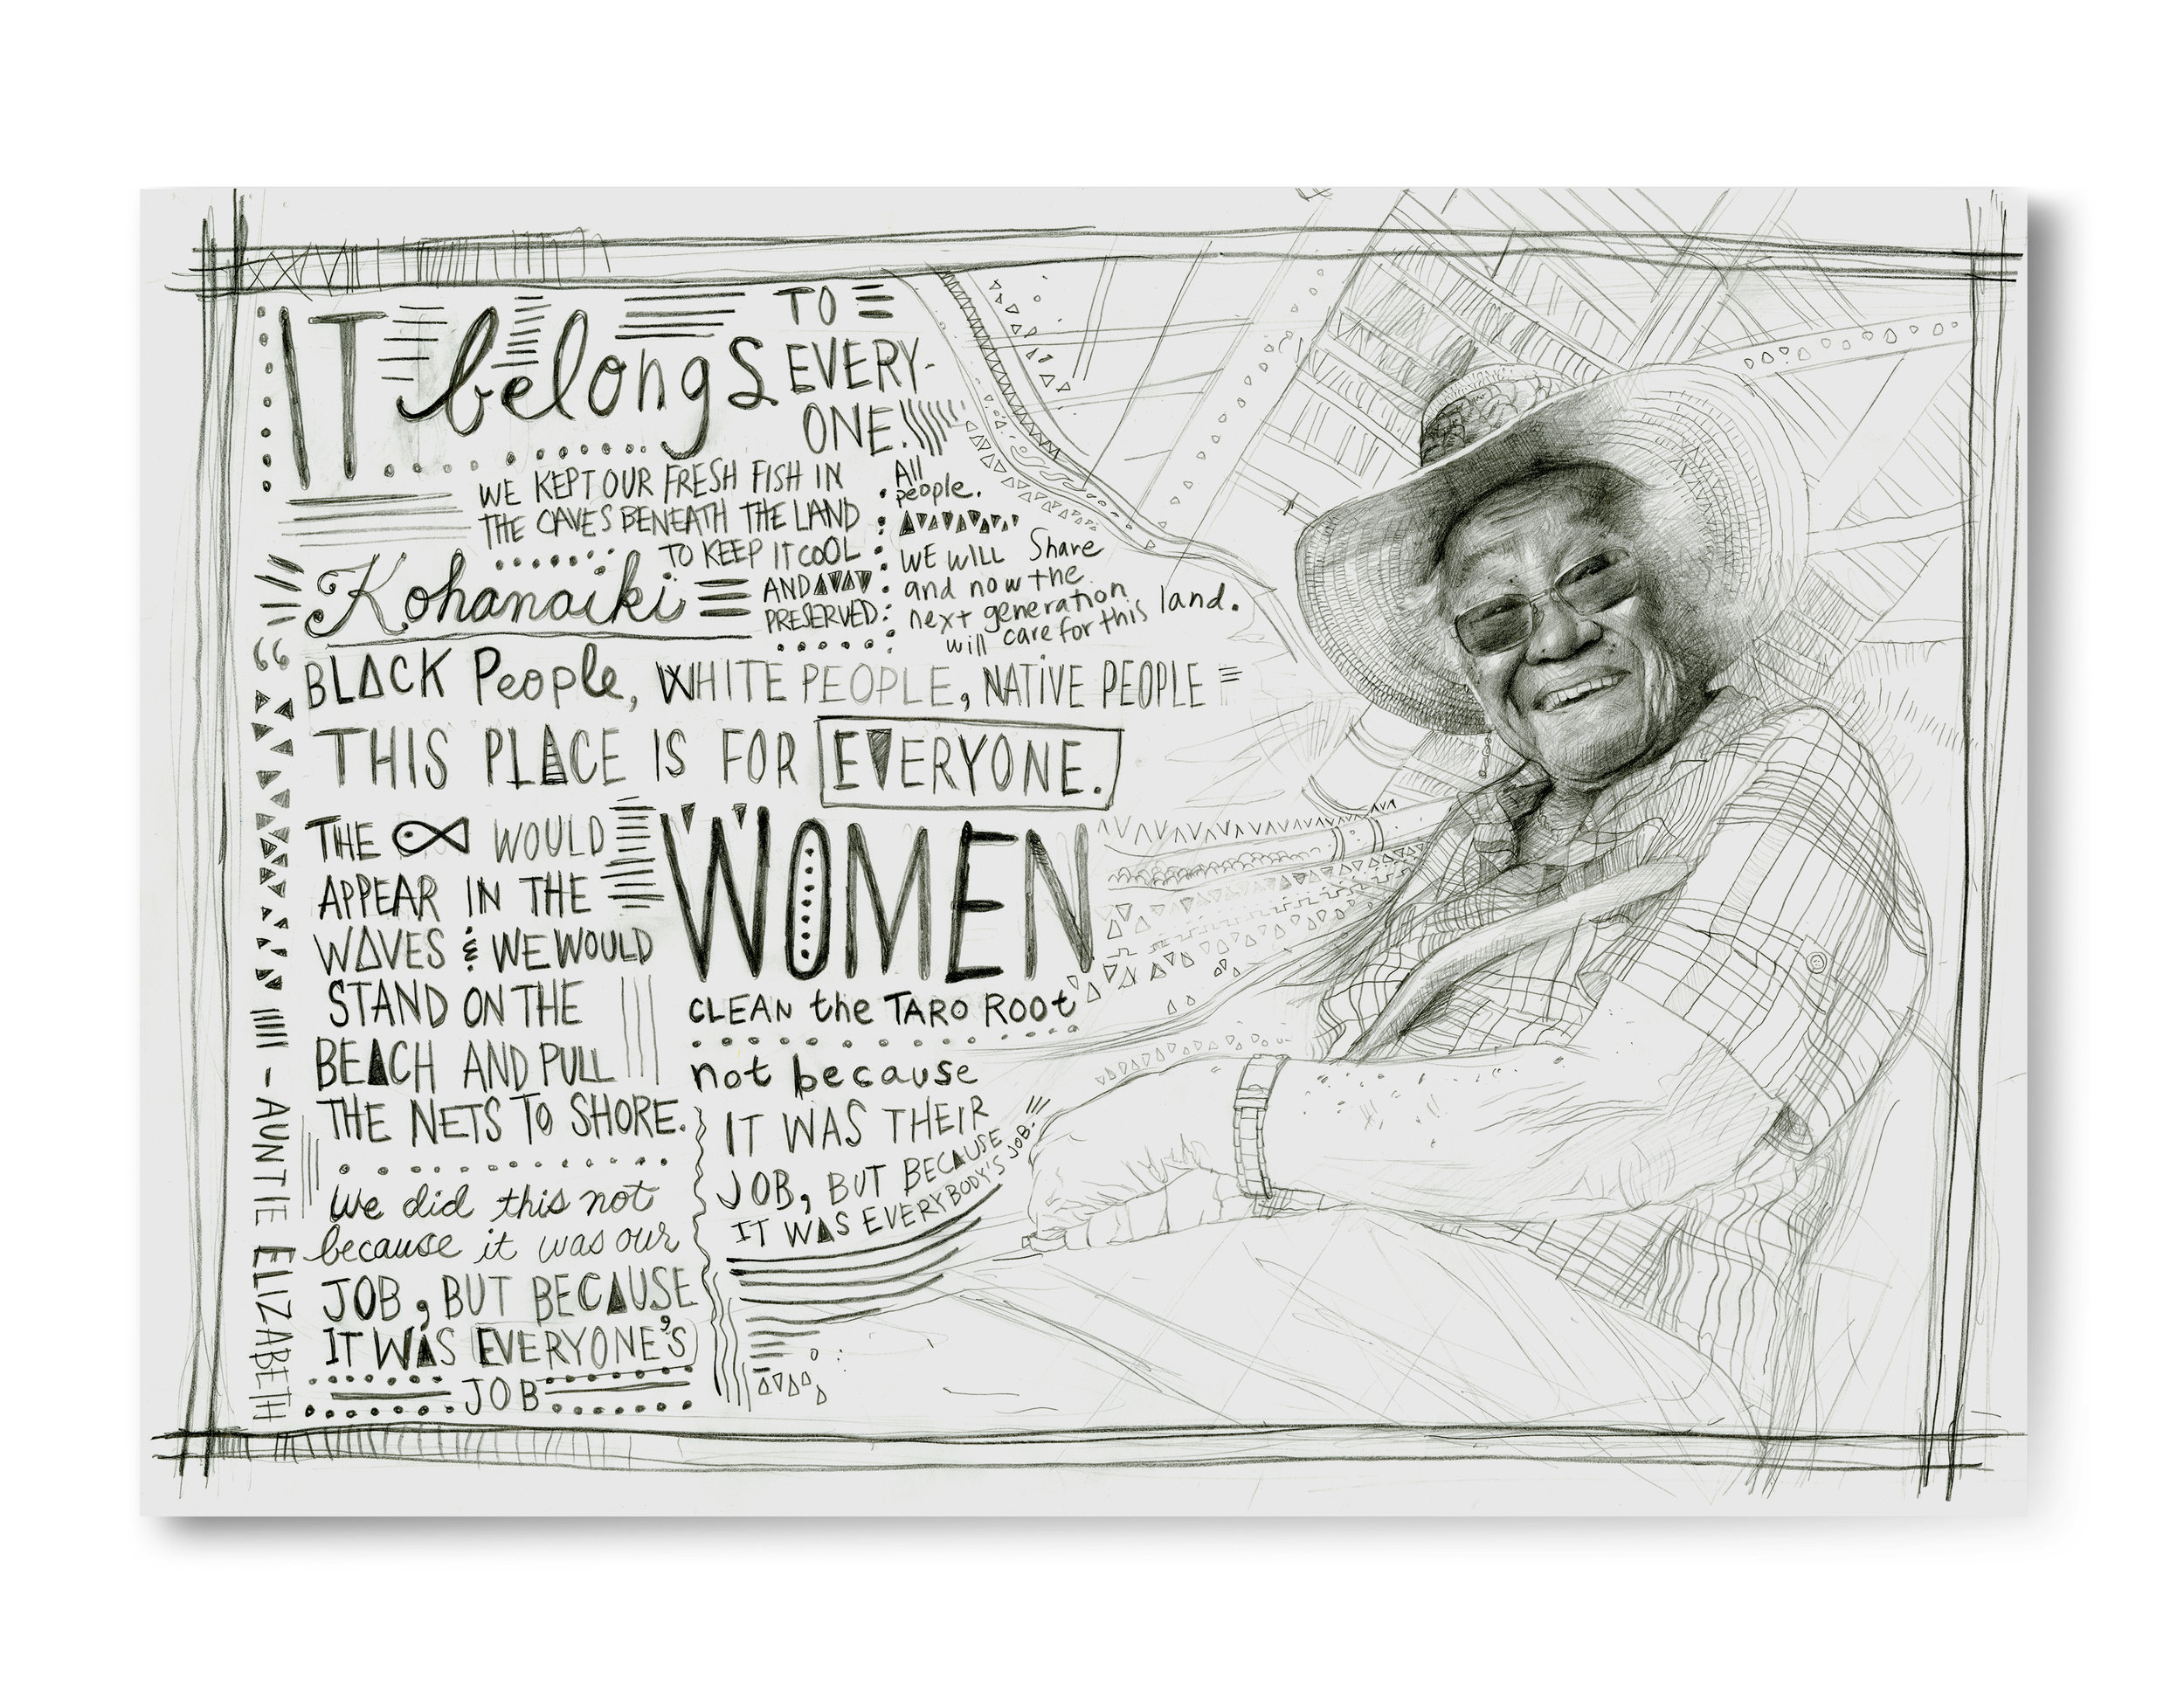 IT belongs TO
EVERY-
ONE.
WE KEPT OUR FRESH FISH IN
THE CAVES BENEATH THE LAND
TO KEEP IT COOL
AND
PRESERVED
All
people.
WE WILL Share
and now the
next generation
will care for this land.
Kohanaiki
“
BLACK People, WHITE PEOPLE, NATIVE PEOPLE
THIS PLACE IS FOR EVERYONE.
THE WOULD
APPEAR IN THE
WAVES & WE WOULD
STAND ON THE
BEACH AND PULL
THE NETS TO SHORE.
We did this not
because it was our
JOB, BUT BECAUSE
IT WAS EVERYONE'S
JOB
WOMEN
CLEAN the TARO ROOt
not because
IT WAS THEIR
JOB, BUT BECAUSE
IT WAS EVERYBODY'S JOB.
- AUNTIE ELIZABETH